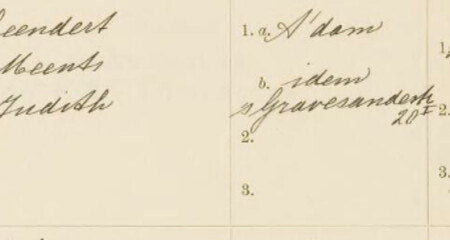 eendert
Meents
Judith
1. a. A'dam
b. idem
's Gravesandestr
20 I
2.
3.
1.
2.
3.